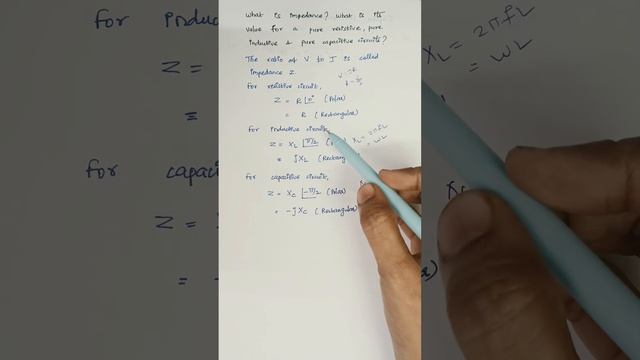 What is impedance? What is its
value for a pure resistive, pure
inductive & pure capacitive circuits?
The ratio of V to I is called
impedance Z.
For resistive circuit,
Z = R ∠0° (Polar)
= R (Rectangular)
For inductive circuit,
Z = XL ∠π/2 XL = 2πfL
= jXL (Rectang = ωL
For capacitive circuit,
Z = XC ∠-π/2 (Polar)
= -jXC (Rectangular)